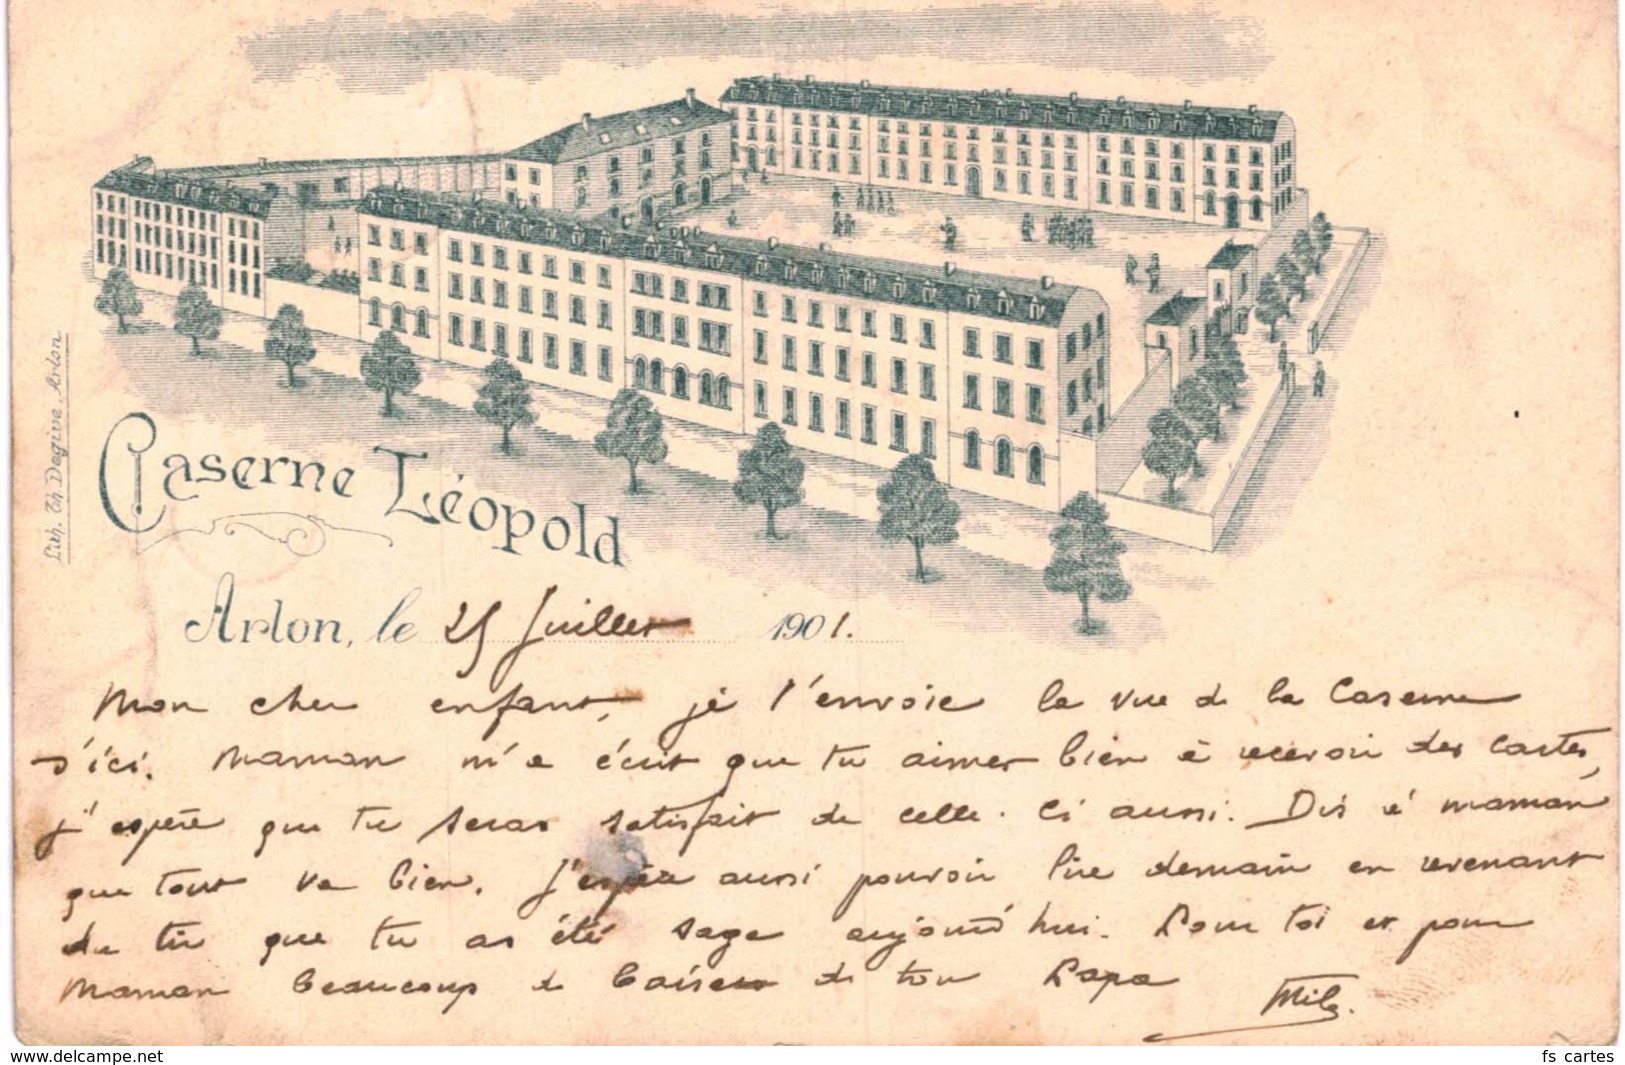 Lith. Th. Degive, Arlon
Caserne Léopold
Arlon, le 25 Juillet 1901.
Mon cher enfant, je t'envoie la vue de la Caserne
d'ici. Maman m'a écrit que tu aimes bien à recevoir des cartes,
j'espère que tu seras satisfait de celle-ci aussi. Dis à maman
que tout va bien. J'espère aussi pouvoir lire demain en revenant
du tir que tu as été sage aujourd'hui. Pour toi et pour
Maman beaucoup de baisers de ton Papa
delcampe.net
fs_cartes